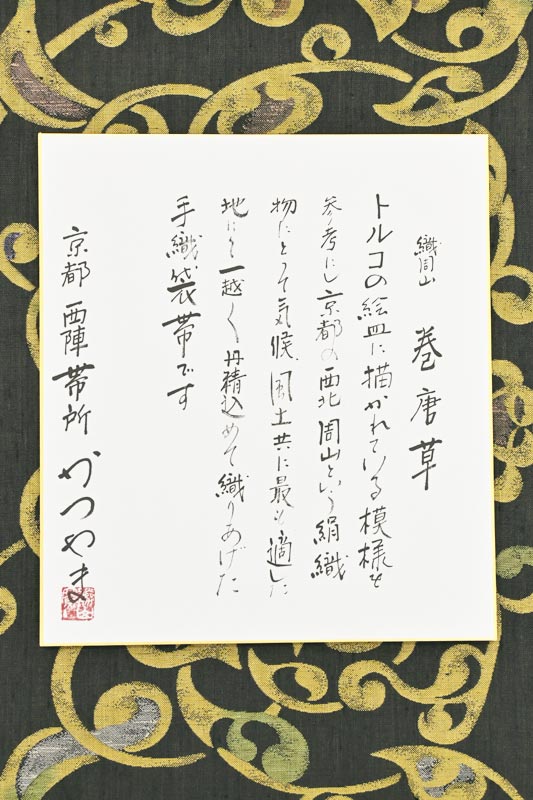 織周山 巻唐草
トルコの絵皿に描かれている模様を
参考にし京都の西北周山という絹織
物にとって気候、風土共に最も適した
地にて一越く丹積込めて織りあげた
手織袋帯です
京都西陣帯所かつやま